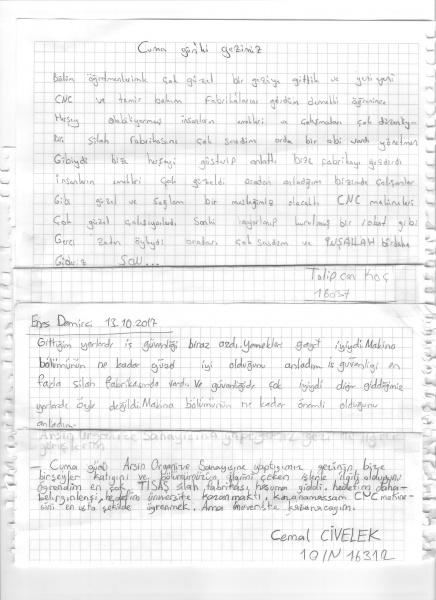 Cuma günkü gezimiz
Bölüm öğretmenlerimle çok güzel bir geziye gittik ve yeni yeni
CNC ve tamir bakım Fabrikalarını gördüm
Herşey insanların emekleri ve çalışmaları çok
Bir silah fabrikasına çok sevdim orda bir abi vardı yönetmen
Gibiydi bize herşeyi gösterip anlattı bize fabrikayı gezdirdi
İnsanların emekleri çok güzeldi oradan anladığım bizimde çalışanlar
Gibi güzel ve sağlam bir mesleğimiz olacaktı CNC makineleri
Çok güzel çalışıyorlardı Sanki ayarlanıp kurulmuş bir robot gibi
Gerçi zaten öyleydi oraları çok sevdim ve İNŞALLAH birdaha
Gideriz SON...
Talip can Koç
16037
Enes Demirci 13.10.2017
Gittiğim yerlerde iş güvenliği biraz azdı. Yemekler gayet iyiydi. Makina
bölümünün ne kadar güzel iyi olduğunu anladım iş güvenliği en
fazla silah fabrikasında vardı. Ve güvenliğide çok iyiydi diğer gittiğimiz
yerlerde öyle değildi. Makina bölümünün ne kadar önemli olduğunu
anladım.
Arsin Organize Sanayisine yaptığımız gezinin
görüşlerim
- Cuma günü Arsin Organize Sanayisine yaptığımız gezinin bize
birşeyler kattığını ve bölümümüzün ilgimi çeken işlerle ilgili olduğunu
öğrendim en çok TİSAŞ silah fabrikası hoşuma gitti. Hedefim daha
belirginleşti, hedefim üniversite kazanmaktı, kazanamassam CNC makine-
sini en usta şekilde öğrenmek. Ama üniversite kazanacağım.
Cemal CİVELEK
10/N 16312